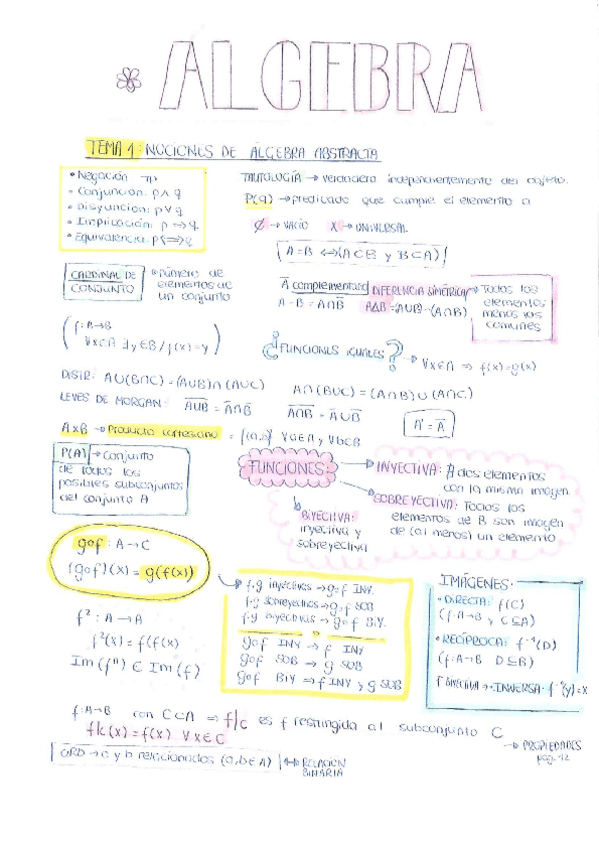 * ÁLGEBRA
TEMA 1: NOCIONES DE ÁLGEBRA ABSTRACTA
• Negación ¬p
• Conjunción: p ∧ q
• Disyunción: p ∨ q
• Implicación: p → q
• Equivalencia: p ⟺ q
TAUTOLOGÍA → verdadero independientemente del objeto.
P(a) → predicado que cumple el elemento a
∅ → VACÍO X → UNIVERSAL
A = B ⟺ (A⊂B y B⊂A)
CARDINAL DE CONJUNTO
→ número de elementos de un conjunto
Ā complementario
A - B = A∩B̄
DIFERENCIA SIMÉTRICA
A∆B = (A∪B) - (A∩B)
→ Todos los elementos menos los comunes
f: A→B
∀x∈A ∃ y∈B / f(x) = y
¿FUNCIONES IGUALES? → ∀x∈A ⇒ f(x) = g(x)
DISTR: A∪(B∩C) = (A∪B)∩(A∪C) A∩(B∪C) = (A∩B)∪(A∩C)
LEYES DE MORGAN:
A × B → Producto cartesiano = {(a,b)} ∀a∈A y ∀b∈B
P(A) → Conjunto
de todos los
posibles subconjuntos
del conjunto A
FUNCIONES:
→ INYECTIVA: A dos elementos
con la misma imagen
→ SOBREYECTIVA: Todos los
elementos de B son imagen
de (al menos) un elemento
BIYECTIVA:
inyectiva y
sobreyectiva
g∘f: A→C
(g∘f)(x) = g(f(x))
f² : A→A
f²(x) = f(f(x)
Im(fⁿ) ⊂ Im(f)
f·g inyectivas → g∘f INY.
f·g sobreyectivas → g∘f SOB
f·g biyectivas → g∘f BIY.
g∘f INY → f INY
g∘f SOB → g SOB
g∘f BIY → f INY, g SOB
IMÁGENES:
• DIRECTA: f(C)
(f: A→B, C⊆A)
• RECÍPROCA: f⁻¹(D)
(f: A→B D⊆B)
INVERSA: f⁻¹(y) = x
f: A→B con C⊂A ⇒ f/c es f restringida al subconjunto C
f/c(x) = f(x) ∀x∈C
→ PROPIEDADES
pag. 12
a y b relacionados (a,b∈A) ↔ RELACIÓN
BINARIA